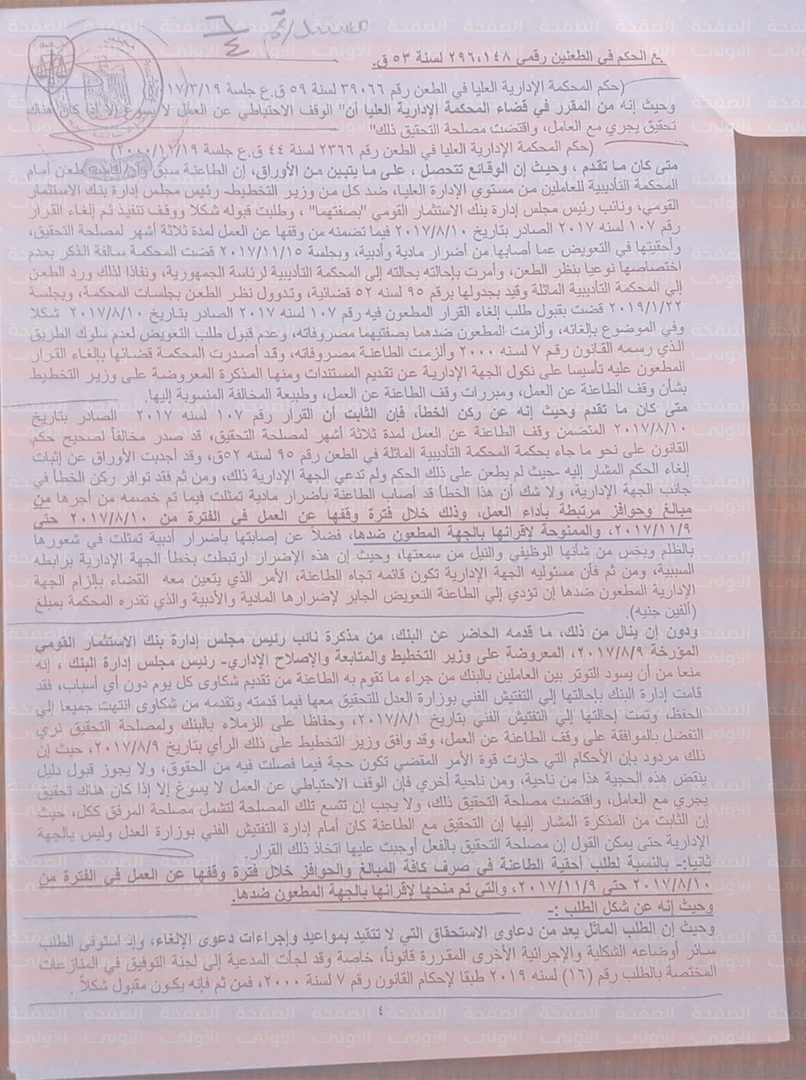 مستند رقم
٦/٤
ع الحكم في الطعنين رقمي ٢٩٦،١٤٨ لسنة ٥٣ ق.
(حكم المحكمة الإدارية العليا في الطعن رقم ٣٩٠٦٦ لسنة ٥٩ ق.ع جلسة ١٧/٣/١٩
وحيث إنه من المقرر في قضاء المحكمة الإدارية العليا أن" الوقف الاحتياطي عن العمل لا يسوغ إلا إذا كان هناك
تحقيق يجري مع العامل، واقتضت مصلحة التحقيق ذلك"
(حكم المحكمة الإدارية العليا في الطعن رقم ٢٣٦٦ لسنة ٤٤ ق.ع جلسة
متى كان ما تقدم ، وحيث إن الوقائع تتحصل ، على ما يتبين من الأوراق، إن الطاعنة سبق وأن أقامت طعن أمام
المحكمة التأديبية للعاملين من مستوي الإدارة العليا، ضد كل من وزير التخطيط- رئيس مجلس إدارة بنك الاستثمار
القومي، ونائب رئيس مجلس إدارة بنك الاستثمار القومي "بصفتهما" ، وطلبت قبوله شكلاً ووقف تنفيذ ثم إلغاء القرار
رقم ١٠٧ لسنه ٢٠١٧ الصادر بتاريخ ٢٠١٧/٨/١٠ فيما تضمنه من وقفها عن العمل لمدة ثلاثة أشهر لمصلحة التحقيق،
وأحقيتها في التعويض عما أصابها من أضرار مادية وأدبية، وبجلسة ٢٠١٧/١١/١٥ قضت المحكمة سالفة الذكر بعدم
اختصاصها نوعيا بنظر الطعن، وأمرت بإحالته بحالته إلى المحكمة التأديبية لرئاسة الجمهورية، ونفاذا لذلك ورد الطعن
إلي المحكمة التأديبية الماثلة وقيد بجدولها برقم ٩٥ لسنه ٥٢ قضائية، وتدوول نظر الطعن بجلسات المحكمة، وبجلسة
٢٠١٩/١/٢٢ قضت بقبول طلب إلغاء القرار المطعون فيه رقم ١٠٧ لسنه ٢٠١٧ الصادر بتاريخ ٢٠١٧/٨/١٠ شكلا
وفي الموضوع بإلغائه، وألزمت المطعون ضدهما بصفتيهما مصروفاته، وعدم قبول طلب التعويض لعدم سلوك الطريق
الذي رسمه القانون رقم ٧ لسنه ٢٠٠٠ وألزمت الطاعنة مصروفاته، وقد أصدرت المحكمة قضائها بإلغاء القرار
المطعون عليه تأسيسا على نكول الجهة الإدارية عن تقديم المستندات ومنها المذكرة المعروضة على وزير التخطيط
بشأن وقف الطاعنة عن العمل، ومبررات وقف الطاعنة عن العمل، وطبيعة المخالفة المنسوبة إليها.
متى كان ما تقدم وحيث إنه عن ركن الخطا، فإن الثابت أن القرار رقم ١٠٧ لسنه ٢٠١٧ الصادر بتاريخ
٢٠١٧/٨/١٠ المتضمن وقف الطاعنة عن العمل لمدة ثلاثة أشهر لمصلحة التحقيق، قد صدر مخالفاً لصحيح حكم
القانون على نحو ما جاء بحكمة المحكمة التأديبية الماثلة في الطعن رقم ٩٥ لسنه ٥٢ق، وقد أجدبت الأوراق عن إثبات
إلغاء الحكم المشار إليه -حيث لم يطعن على ذلك الحكم ولم تدعي الجهة الإدارية ذلك، ومن ثم فقد توافر ركن الخطأ في
جانب الجهة الإدارية، ولا شك أن هذا الخطا قد أصاب الطاعنة بأضرار مادية تمثلت فيما تم خصمه من أجرها من
مبالغ وحوافز مرتبطة بأداء العمل، وذلك خلال فترة وقفها عن العمل في الفترة من ٢٠١٧/٨/١٠ حتى
٢٠١٧/١١/٩، والممنوحة لإقرانها بالجهة المطعون ضدها، فضلاً عن إصابتها بأضرار أدبية تمثلت في شعورها
بالظلم وبخس من شأنها الوظيفي والنيل من سمعتها، وحيث إن هذه الإضرار ارتبطت بخطأ الجهة الإدارية برابطه
السببية، ومن ثم فأن مسئوليه الجهة الإدارية تكون قائمه تجاه الطاعنة، الأمر الذي يتعين معه القضاء بإلزام الجهة
الإدارية المطعون ضدها إن تؤدي إلي الطاعنة التعويض الجابر لإضرارها المادية والأدبية والذي تقدره المحكمة بمبلغ
(ألفين جنيه)
ودون إن ينال من ذلك، ما قدمه الحاضر عن البنك، من مذكرة نائب رئيس مجلس إدارة بنك الاستثمار القومي
المؤرخة ٢٠١٧/٨/٩، المعروضة على وزير التخطيط والمتابعة والإصلاح الإداري- رئيس مجلس إدارة البنك ، إنه
منعا من أن يسود التوتر بين العاملين بالبنك من جراء ما تقوم به الطاعنة من تقديم شكاوى كل يوم دون أي أسباب، فقد
قامت إدارة البنك بإحالتها إلي التفتيش الفني بوزارة العدل للتحقيق معها فيما قدمته وتقدمه من شكاوى انتهت جميعا إلي
الحفظ، وتمت إحالتها إلي التفتيش الفني بتاريخ ٢٠١٧/٨/١، وحفاظا على الزملاء بالبنك ولمصلحة التحقيق نري
التفضل بالموافقة على وقف الطاعنة عن العمل، وقد وافق وزير التخطيط على ذلك الرأي بتاريخ ٢٠١٧/٨/٩، حيث إن
ذلك مردود بإن الأحكام التي حازت قوة الأمر المقضي تكون حجة فيما فصلت فيه من الحقوق، ولا يجوز قبول دليل
ينقض هذه الحجية هذا من ناحية، ومن ناحية أخري فإن الوقف الاحتياطي عن العمل لا يسوغ إلا إذا كان هناك تحقيق
يجري مع العامل، واقتضت مصلحة التحقيق ذلك، ولا يجب إن تتسع تلك المصلحة لتشمل مصلحة المرفق ككل، حيث
إن الثابت من المذكرة المشار إليها إن التحقيق مع الطاعنة كان أمام إدارة التفتيش الفني بوزارة العدل وليس بالجهة
الإدارية حتى يمكن القول إن مصلحة التحقيق بالفعل أوجبت عليها اتخاذ ذلك القرار.
ثانيا:- بالنسبة لطلب أحقية الطاعنة في صرف كافة المبالغ والحوافز خلال فترة وقفها عن العمل في الفترة من
٢٠١٧/٨/١٠ حتى ٢٠١٧/١١/٩، والتي تم منحها لإقرانها بالجهة المطعون ضدها.
وحيث إنه عن شكل الطلب :-
وحيث إن الطلب الماثل يعد من دعاوى الاستحقاق التي لا تتقيد بمواعيد وإجراءات دعوى الإلغاء، وإذ استوفى الطلب
سائر أوضاعه الشكلية والإجرائية الأخرى المقررة قانوناً، خاصة وقد لجأت المدعية إلى لجنة التوفيق في المنازعات
المختصة بالطلب رقم (١٦) لسنه ٢٠١٩ طبقا لإحكام القانون رقم ٧ لسنه ٢٠٠٠، فمن ثم فإنه يكون مقبول شكلاً .
٤